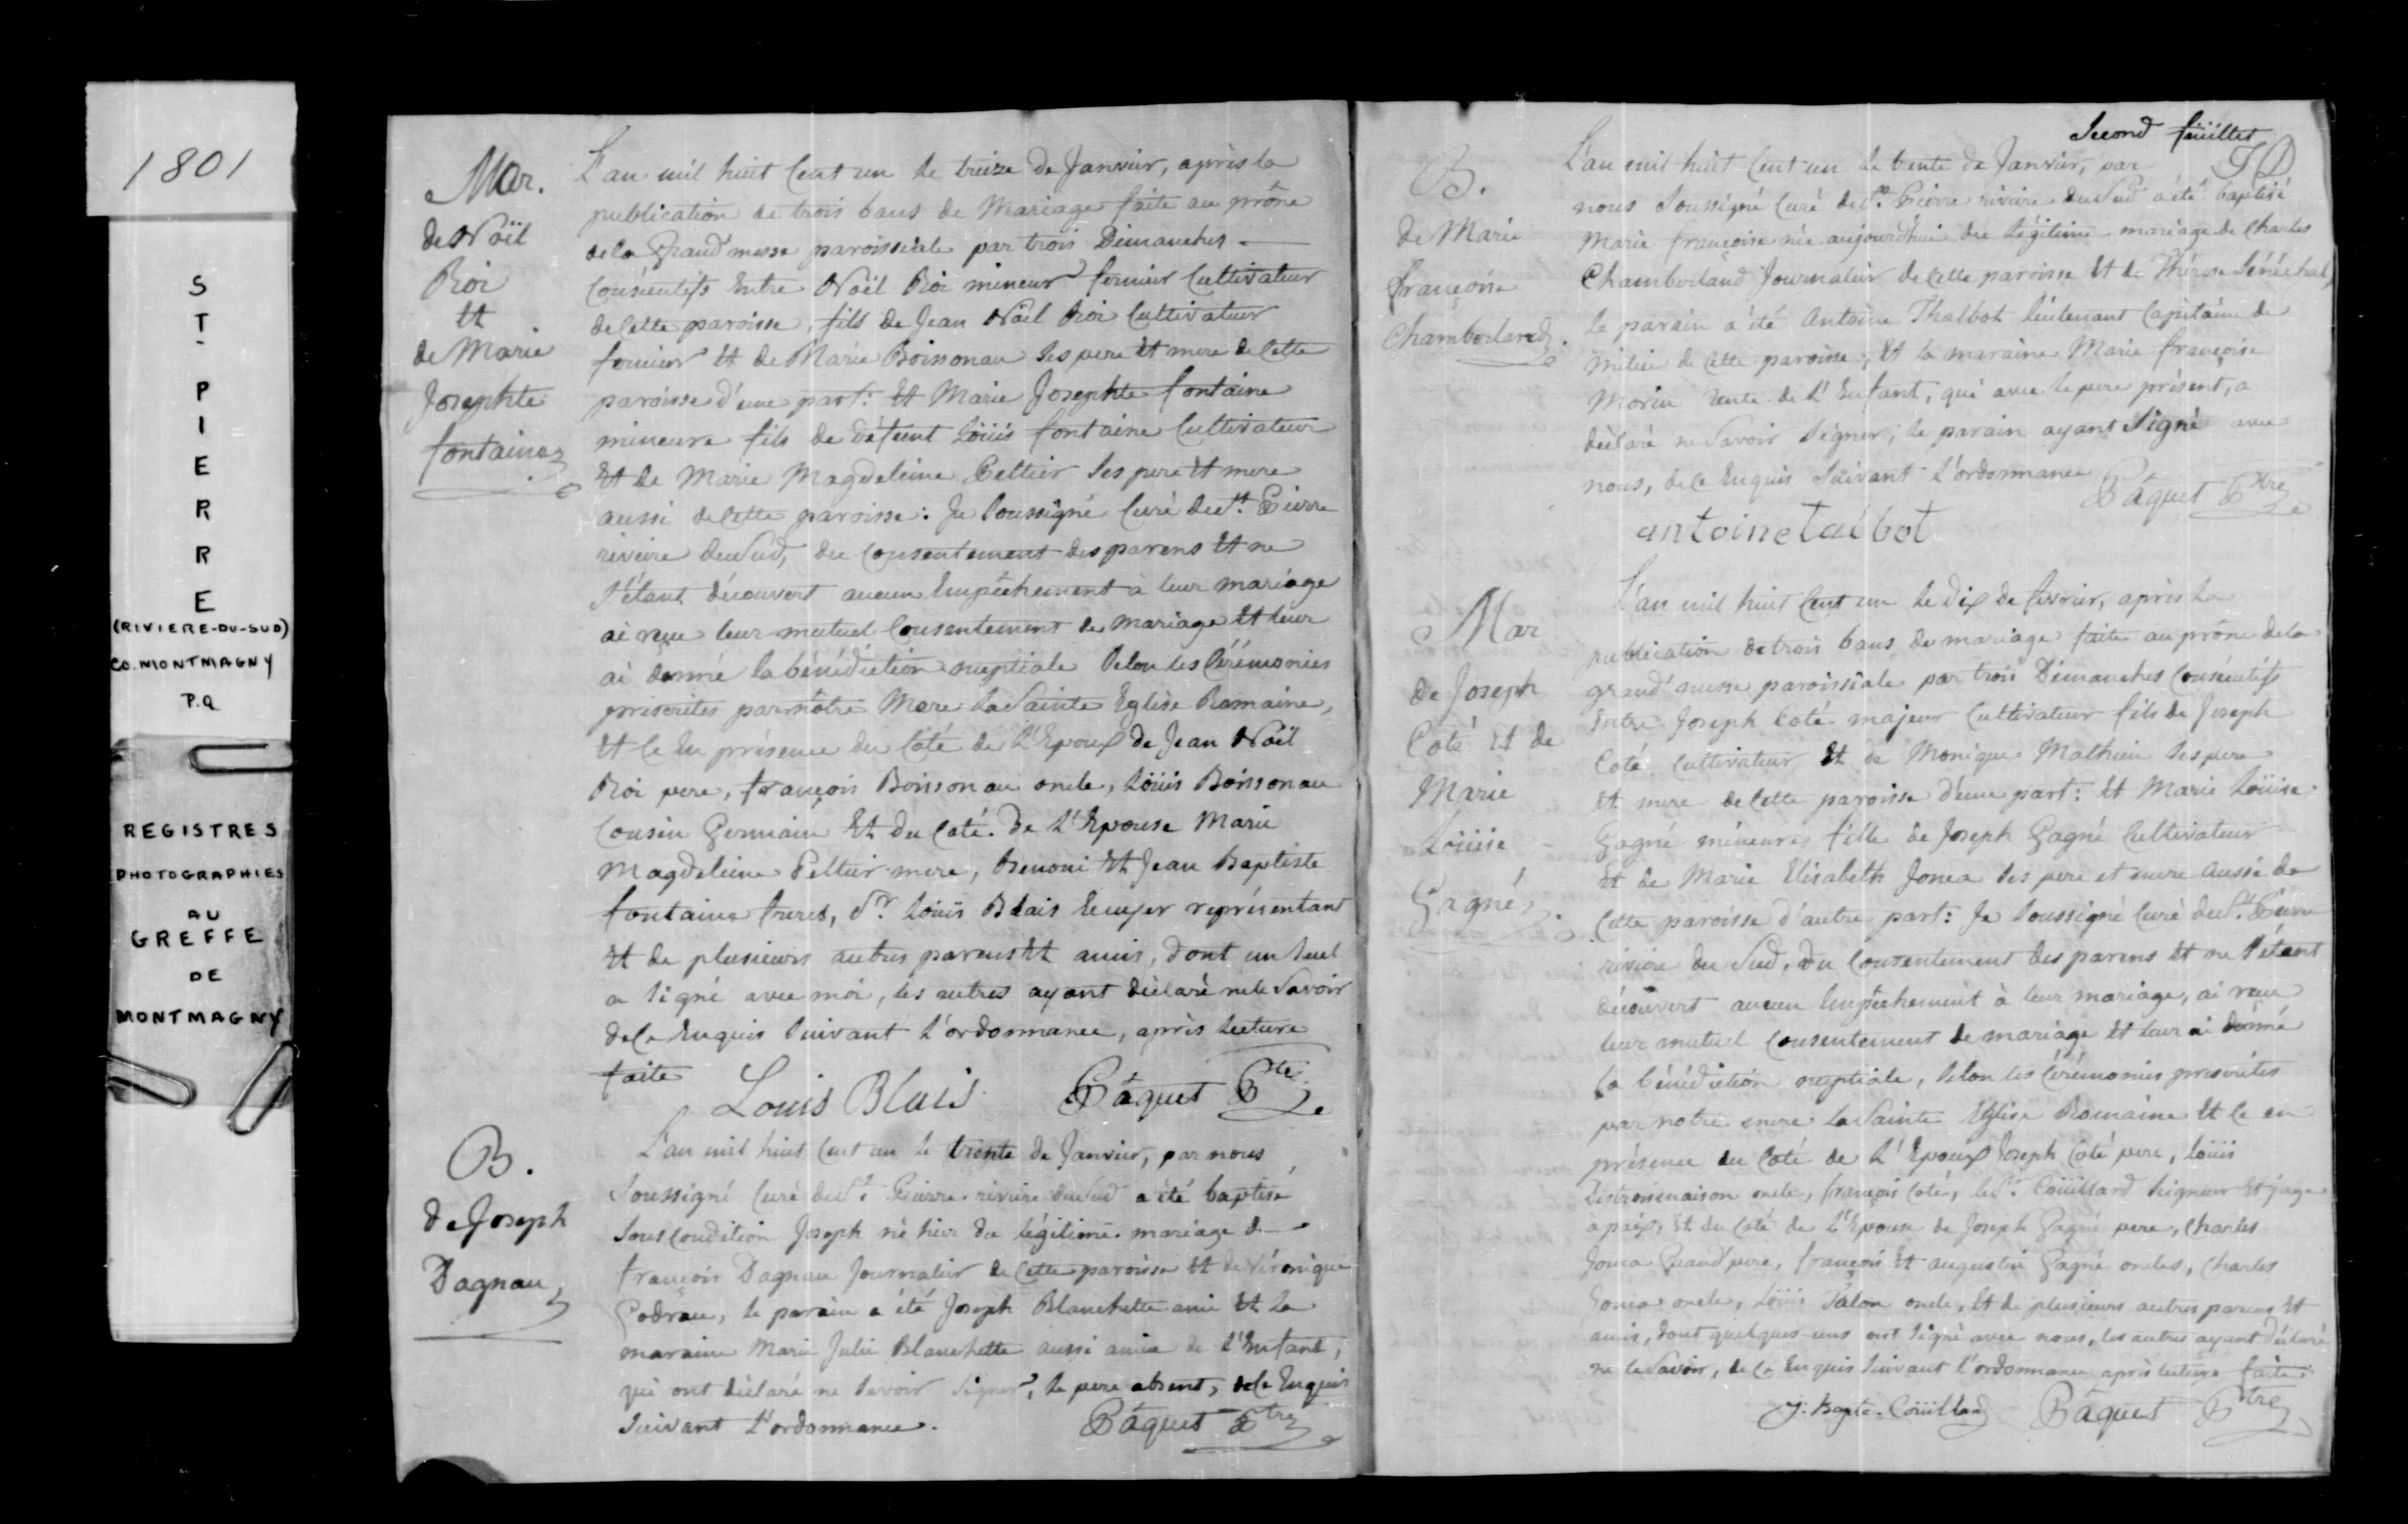 1801
ST. PIERRE
(RIVIERE-DU-SUD)
CO. MONTMAGNY
P.Q
REGISTRES
PHOTOGRAPHIES
AU
GREFFE
DE
MONTMAGNY
Mar.
de Noïl
Roi
et
de Marie
Josephte
fontaine
L'an mil huit Cent un le treize de Janvier, après la
publication de trois bans de Mariage faite au prône
de la Grand messe paroissiale par trois Dimanches
Consécutifs Entre Noël Roi mineur fermier Cultivateur
de Cette paroisse, fils de Jean Noël Roi Cultivateur
fermier et de Marie Boissonau ses pere et mere de Cette
paroisse d'une part: et Marie Josephte fontaine
mineure fils de défunt Loüis fontaine Cultivateur
et de Marie Magdeleine Peltier ses pere et mere
aussi de Cette paroisse: Je Soussigné Curé de St. Pierre
riviere du Sud, du Consentement des parens et ne
S'étant découvert aucun Empêchement à leur mariage
ai reçu leur mutuel Consentement de mariage et leur
ai donné la bénédiction nuptiale Selon les Cérémonies
prescrites par nôtre Mere la Sainte Eglise Romaine,
et Ce En présence du Coté de l'Epoux de Jean Noël
Roi pere, françois Boissonau oncle, Loüis Boissonau
Cousin Germain et du Coté de l'Epouse Marie
Magdeleine Peltier mere, Benoni et Jean Baptiste
fontaine freres, Sr. Loüis Blais Ecuyer représentant
et de plusieurs autres parens et amis, dont un Seul
a Signé avec moi, les autres ayant déclaré ne le Savoir
de Ce Enquis Suivant l'ordonnance, après lecture
faite
Louis Blais Pâquet Ptre
B.
de Joseph
Dagnau
L'an mil huit Cent un le trente de Janvier, par nous
Soussigné Curé de St. Pierre riviere du Sud a été baptisé
Sous Condition Joseph né hier du légitime mariage de
françois Dagnau Journalier de Cette paroisse et de Véronique
Godrau, le parain a été Joseph Blanchette ami et la
maraine Marie Julie Blanchette aussi amie de l'Enfant,
qui ont déclaré ne Savoir Signer, le pere absent, de Ce Enquis
Suivant l'ordonnance. Pâquet Ptre
Second feüillet
B.
de Marie
françoise
Chamberland
L'an mil huit Cent un le trente de Janvier, par
nous Soussigné Curé de St. Pierre riviere du Sud a été baptisé
Marie françoise née aujourd'hui du légitime mariage de Charles
Chamberland Journalier de Cette paroisse et de Thérese Sénéchal,
le parain a été Antoine Thalbot Lieutenant Capitaine de
milice de Cette paroisse, et la maraine Marie françoise
Morin tente de l'Enfant, qui avec le pere présent, a
déclaré ne Savoir Signer, le parain ayant Signé avec
nous, de Ce Enquis Suivant l'ordonnance
Pâquet Ptre
antoine talbot
Mar
de Joseph
Coté et de
Marie
Loüise
Gagné
L'an mil huit Cent un le dix de fevrier, après la
publication de trois bans de mariage faite au prône de la
grand'messe paroissiale par trois Dimanches Consécutifs
Entre Joseph Coté majeur Cultivateur fils de Joseph
Coté Cultivateur et de Monique Mathieu ses pere
et mere de Cette paroisse d'une part: et Marie Loüise
Gagné mineure fille de Joseph Gagné Cultivateur
et de Marie Elisabeth Jonca ses pere et mere aussi de
Cette paroisse d'autre part: Je Soussigné Curé de St. Pierre
riviere du Sud, du Consentement des parens et ne S'étant
découvert aucun Empêchement à leur mariage, ai reçu
leur mutuel Consentement de mariage et leur ai donné
la bénédiction nuptiale, Selon les Cérémonies prescrites
par notre mere la Sainte Eglise Romaine et Ce en
présence du Coté de l'Epoux Joseph Coté pere, Loüis
oncle, françois Coté, le Sr. Coüillard Seigneur et juge
a paix, et du Coté de l'Epouse de Joseph Gagné pere, Charles
Jonca Grand pere, françois et augustin Gagné oncles, Charles
Jonca oncle, Loüis Talon oncle, et de plusieurs autres parens et
amis, dont quelques uns ont Signé avec nous, les autres ayant déclaré
ne le Savoir, de Ce Enquis Suivant l'ordonnance après lecture faite
J. Bapte. Coüillard Pâquet Ptre